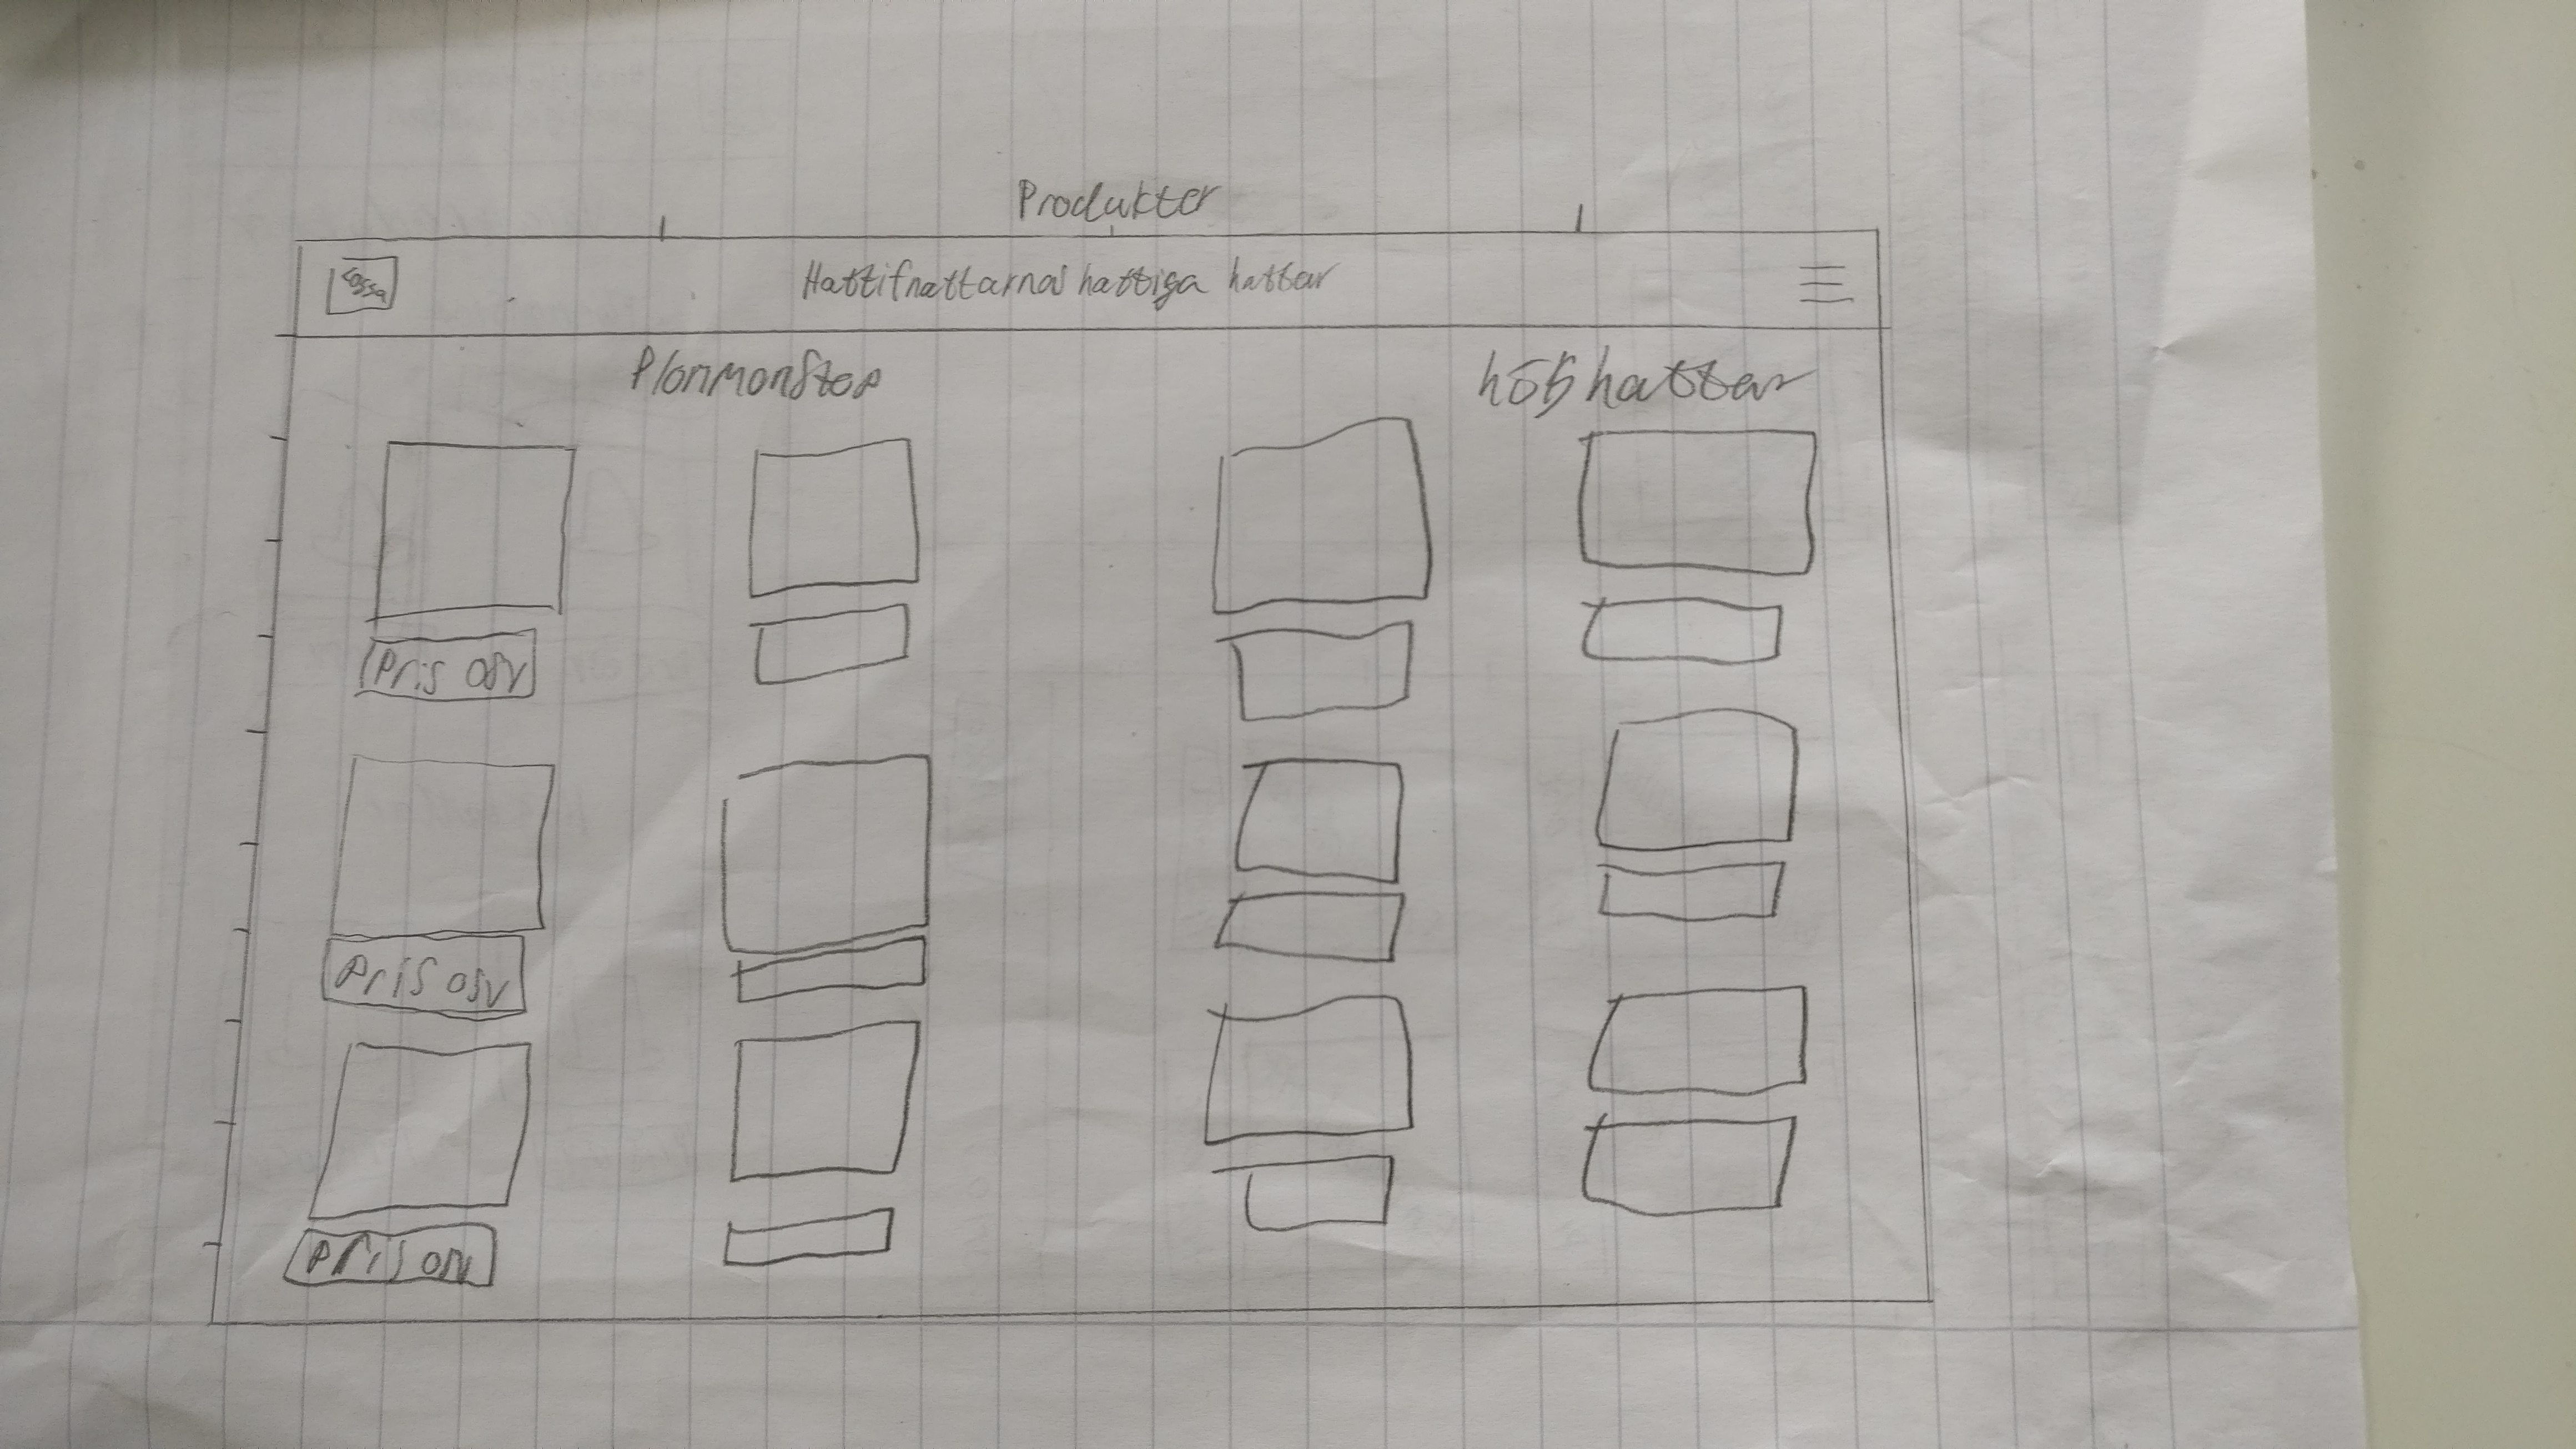 Produkter
Hattifnattarna hattiga hattar
Plonmonster
höghattar
Pris osv
Pris osv
Pris osv